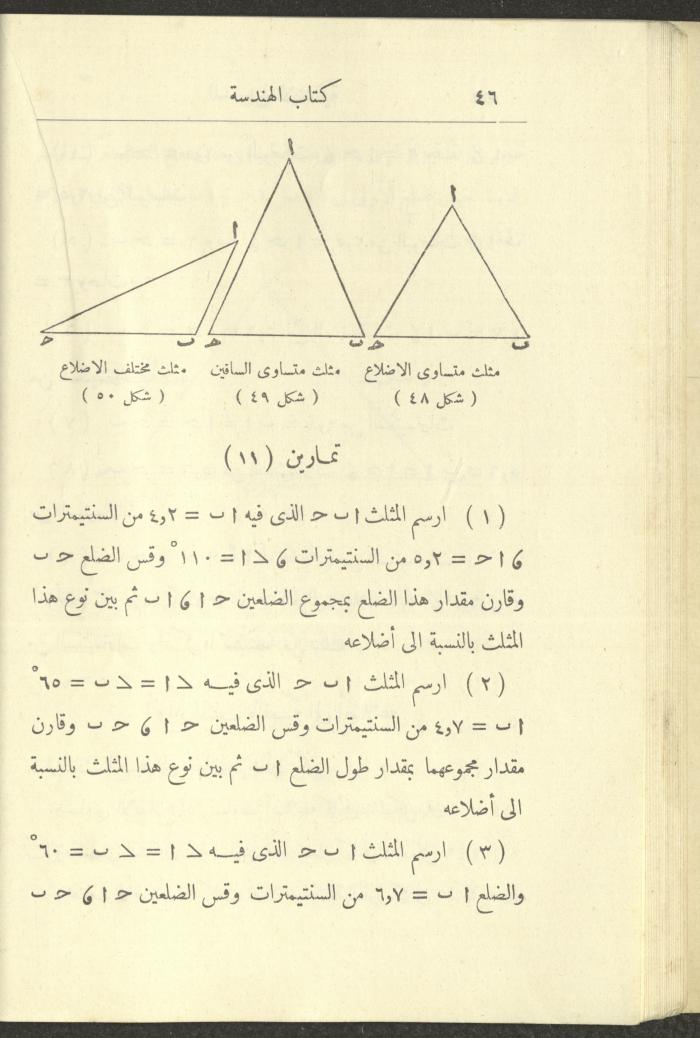 ٤٦ كتاب الهندسة
ا ا ا
ب ح ب ح ب ح
مثلث متساوى الاضلاع مثلث متساوى الساقين مثلث مختلف الاضلاع
( شكل ٤٨ ) ( شكل ٤٩ ) ( شكل ٥٠ )
تمارين (١١)
( ١ ) ارسم المثلث ا ب ح الذى فيه ا ب = ٤,٢ من السنتيمترات
6 ا ح = ٥,٢ من السنتيمترات 6 > ا = ١١٠° وقس الضلع ح ب
وقارن مقدار هذا الضلع بمجموع الضلعين ح ا 6 ا ب ثم بين نوع هذا
المثلث بالنسبة الى أضلاعه
( ٢ ) ارسم المثلث ا ب ح الذى فيـــه > ا = > ب = ٦٥°
ا ب = ٤,٧ من السنتيمترات وقس الضلعين ح ا 6 ح ب وقارن
مقدار مجموعهما بمقدار طول الضلع ا ب ثم بين نوع هذا المثلث بالنسبة
الى أضلاعه
( ٣ ) ارسم المثلث ا ب ح الذى فيـــه > ا = > ب = ٦٠°
والضلع ا ب = ٦,٧ من السنتيمترات وقس الضلعين ح ا 6 ح ب